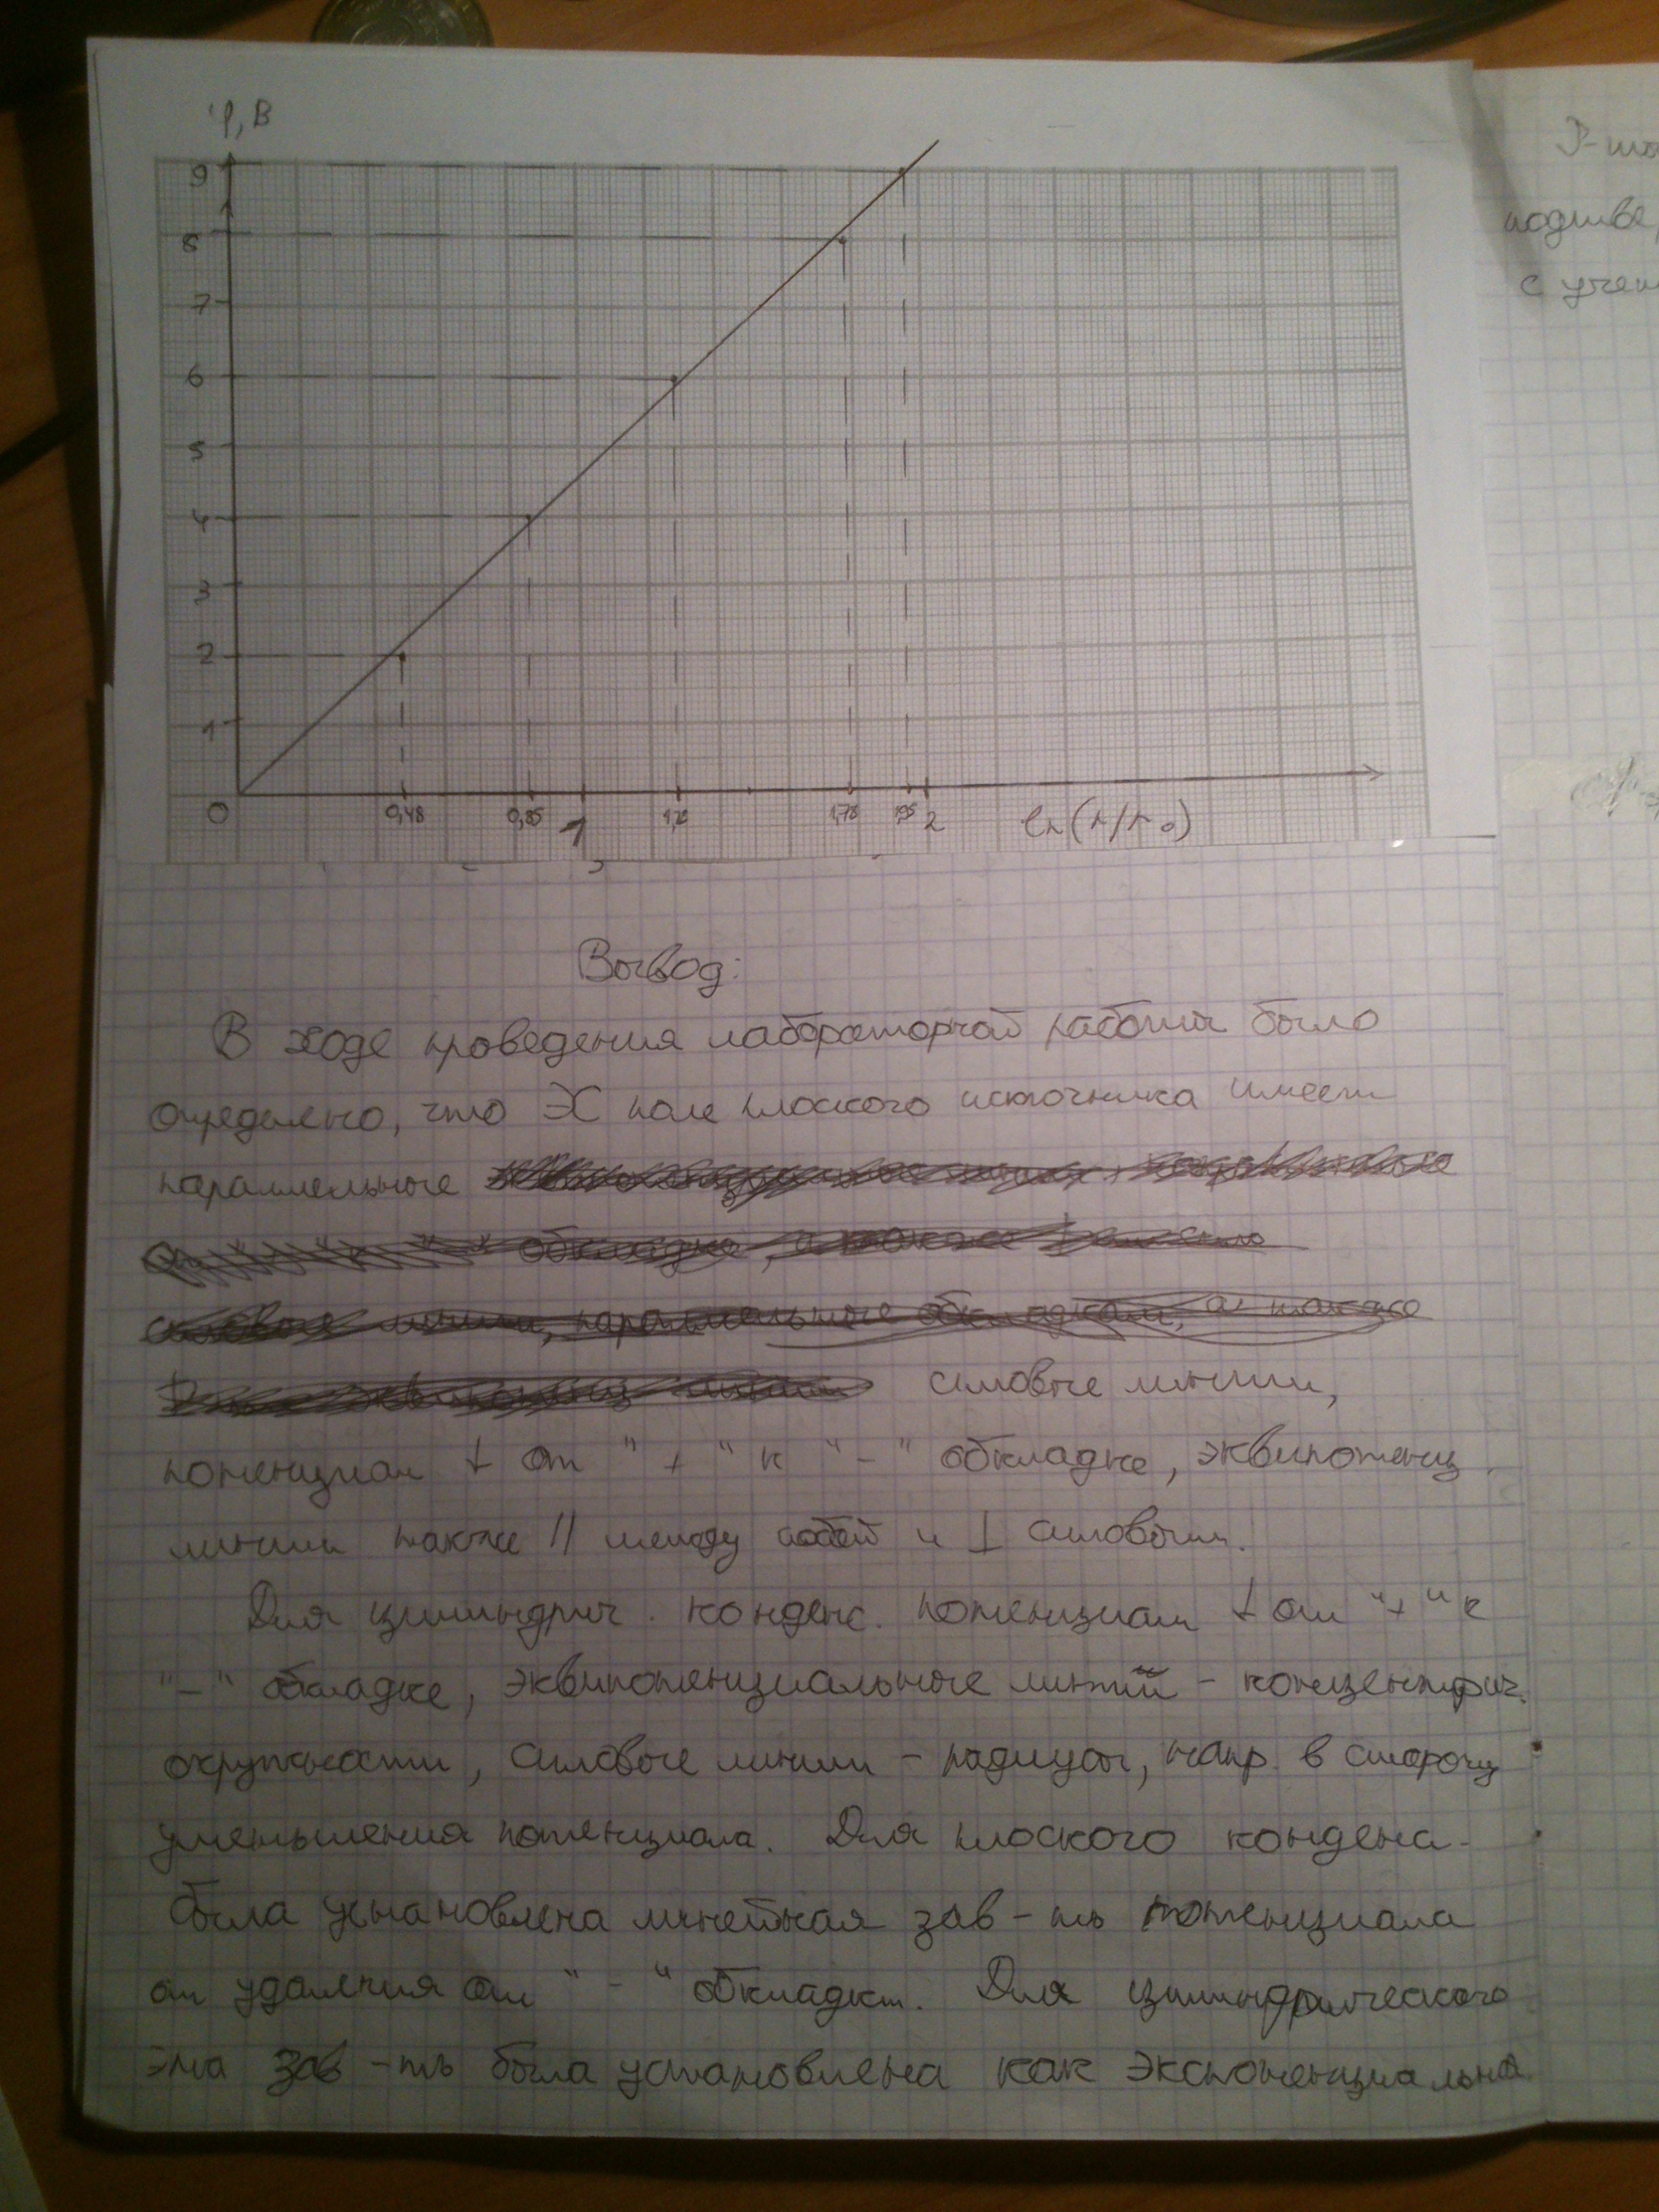 φ, В
9
8
7
6
5
4
3
2
1
0
0,48 0,85 1 1,28 1,78 1,95 2 ln(r/r₀)
Вывод:
В ходе проведения лабораторной работы было
определно, что ЭС поле плоского источника имеет
параллельные
силовые линии,
потенциал ↓ от "+" к "-" обкладке, эквипотенц.
линии также || между собой и ⊥ силовым.
Для цилиндрич. конденс. потенциал ↓ от "+" к
"-" обкладке, эквипотенциальные линии - концентрич.
окружности, силовые линии - радиусы, напр. в сторону
уменьшения потенциала. Для плоского конденса-
была установлена линейная зав-ть потенциала
от удаления от "-" обкладки. Для цилиндрического
эта зав-ть была установлена как экспоненциальна
подтвер
с учен